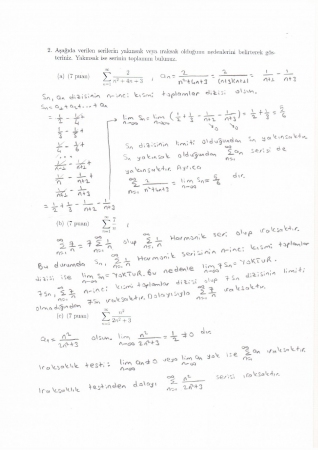 2. Aşağıda verilen serilerin yakınsak veya ıraksak olduğunu nedenlerini belirterek gösteriniz. Yakınsak ise serinin toplamını bulunuz.
(a) (7 puan) ∑_{n=1}^{∞} 2/(n²+4n+3) , an = 2/(n²+4n+3) = 2/((n+1)(n+3)) = 1/(n+1) - 1/(n+3)
Sn, an dizisinin n-inci kısmi toplamlar dizisi olsun.
Sn = a1+a2+...+an
= 1/2 - 1/4 +
1/3 - 1/5 +
1/4 - 1/6 +
...
1/n - 1/(n+2) +
1/(n+1) - 1/(n+3)
= 1/2 + 1/3 - 1/(n+2) - 1/(n+3)
lim_{n→∞} Sn = lim_{n→∞} (1/2 + 1/3 - 1/(n+2) - 1/(n+3)) = 1/2 + 1/3 = 5/6
Sn dizisinin limiti olduğundan Sn yakınsaktır
Sn yakınsak olduğundan ∑_{n=1}^{∞} an serisi de
yakınsaktır. Ayrıca
∑_{n=1}^{∞} 2/(n²+4n+3) = lim_{n→∞} Sn = 5/6 dır.
(b) (7 puan) ∑_{n=1}^{∞} 7/n ,
∑_{n=1}^{∞} 7/n = 7 ∑_{n=1}^{∞} 1/n olup ∑_{n=1}^{∞} 1/n Harmonik seri olup ıraksaktır.
Bu durumda Sn, ∑_{n=1}^{∞} 1/n Harmonik serisinin n-inci kısmi toplamlar
dizisi ise lim_{n→∞} Sn = YOKTUR. Bu nedenle lim_{n→∞} 7Sn = YOKTUR.
7Sn, ∑_{n=1}^{∞} 7/n n-inci kısmi toplamlar dizisi olup 7Sn dizisinin limiti
olmadığından 7Sn ıraksaktır. Dolayısıyla ∑_{n=1}^{∞} 7/n ıraksaktır.
(c) (7 puan) ∑_{n=1}^{∞} n²/(2n²+3)
an = n²/(2n²+3) olsun. lim_{n→∞} n²/(2n²+3) = 1/2 ≠ 0 dır
Iraksaklık testi: lim_{n→∞} an ≠ 0 veya lim_{n→∞} an yok ise ∑_{n=1}^{∞} an ıraksaktır.
Iraksaklık testinden dolayı ∑_{n=1}^{∞} n²/(2n²+3) serisi ıraksaktır.